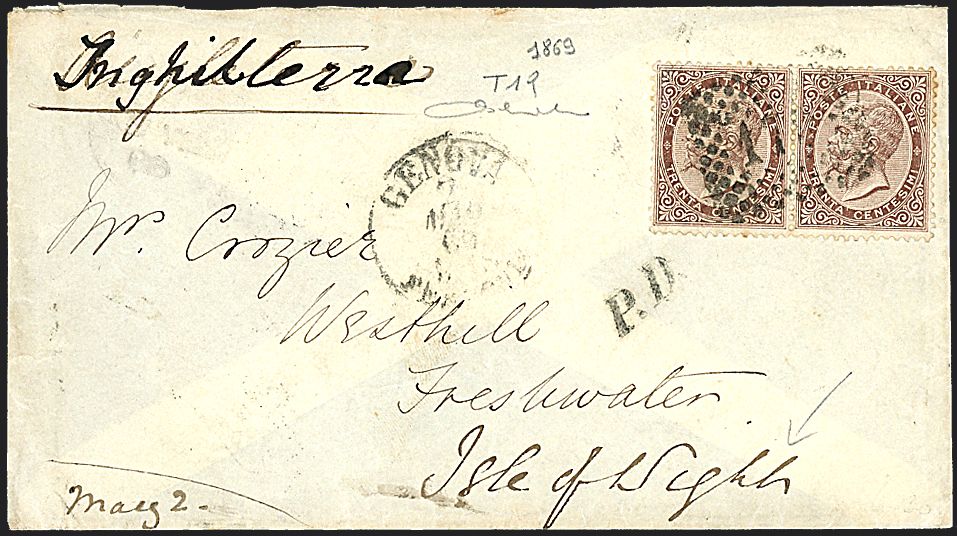 Inghilterra
1869
T19
POSTE ITALIANE
TRENTA CENTESIMI
POSTE ITALIANE
TRENTA CENTESIMI
GENOVA
69
Mrs. Crozier
P.D.
Westhill
Freshwater
Isle of Wight